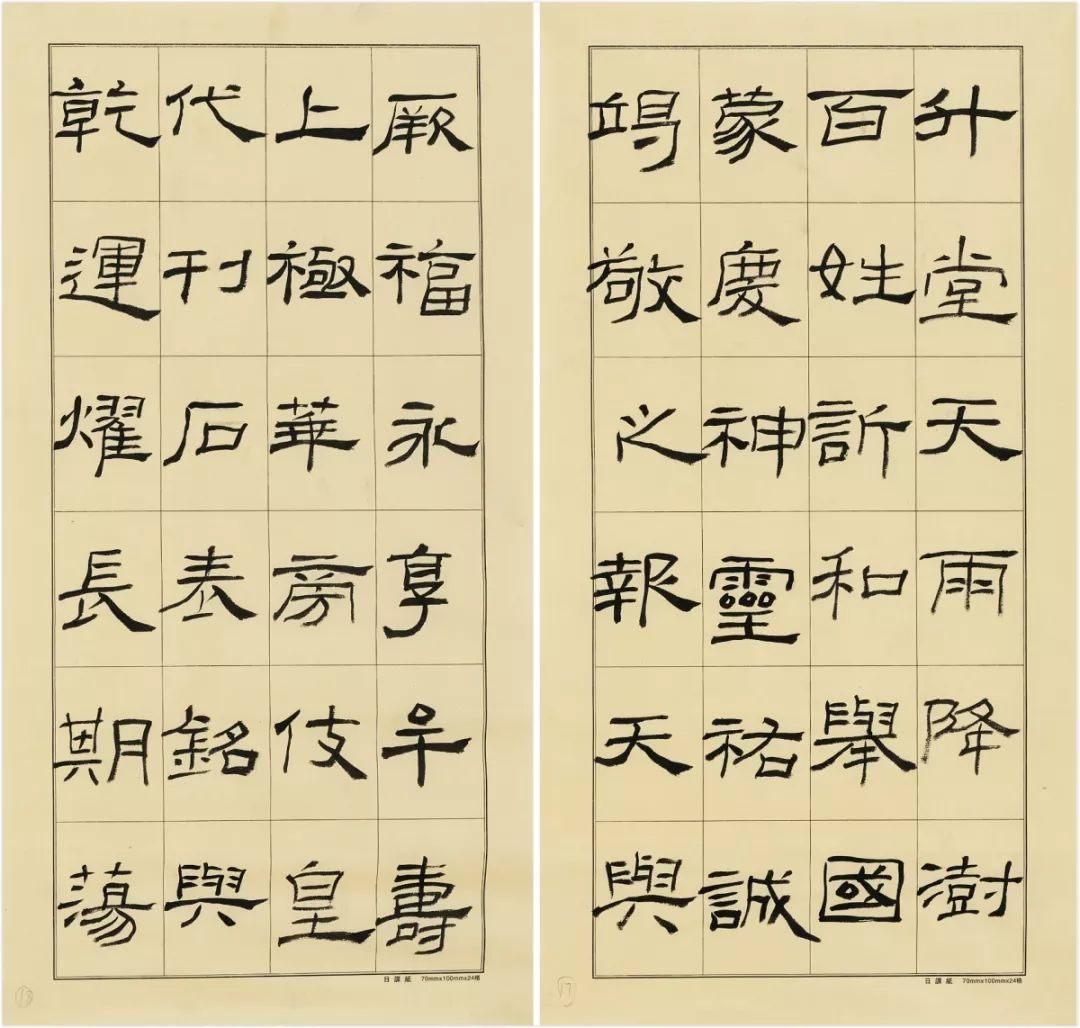 升堂天雨降澍
百姓訢和舉國
蒙慶神靈祐誠
竭敬之報天與
日課紙 70mmx100mmx24格
17
厥福永享牟壽
上極華旁伎皇
代刊石表銘與
乾運燿長期蕩
日課紙 70mmx100mmx24格
18